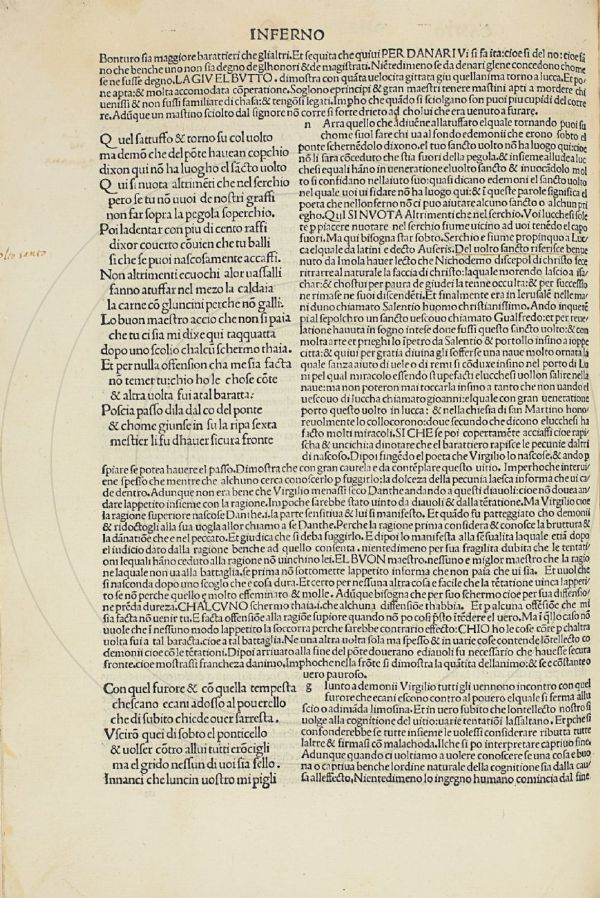 INFERNO
Bonturo sia maggiore barattieri che glialtri. Et seguita che quiui PER DANARI Vi si fa ita: cioe si del no: cioe fā
no che benche uno non sia degno deglhonori & de magistrati. Niētedimeno se da denari glene concedono chome
se ne fusse degno. LAGIV EL BVTTO. dimostra con quāta uelocita gittata giu quellanima torno a lucca. Et po⸗
ne apta: & molta accomodata cōperatione. Soglono eprincipi & gran maestri tenere mastini apti a mordere chi
uenissi & non fussi familiare di chasa: & tengōsi legati. Impho che quādo si sciolgano son puoi piu cupidi del corre
re. Adūque un mastino sciolto dal signore nō corre si forte drieto ad cholui che era uenuto a furare.
Quel sattuffo & torno su col uolto
ma demō che del pōte hauean copchio
dixon qui nō ha luogho el sācto uolto
Qui si nuota altrimēti che nel serchio
pero se tu nō uuoi de nostri graffi
non far sopra la pegola soperchio.
Poi ladentar con piu di cento raffi
dixor couerto cōuien che tu balli
si che se puoi nascosamente accaffi.
Non altrimenti ecuochi alor uassalli
fanno atuffar nel mezo la caldaia
la carne cō gluncini perche nō galli.
Lo buon maestro accio che non si paia
che tu ci sia mi dixe qui taqquatta
dopo uno scolio chalcū schermo thaia.
Et per nulla offension cha me sia facta
nō temer tu: chio ho le chose cōte
& altra uolta fui atal baratta.
Poscia passo dila dal co del ponte
& chome giunse in su la ripa sexta
mestier li fu dhauer sicura fronte
n Arra quello che adiuēne allatuffato elquale tornando puoi su
chome suol fare chi ua al fondo edemonii che erono sobto el
ponte schernēdolo dixono. el tuo sancto uolto nō ha luogo qui: cioe
nō li sara cōceduto che stia fuori della pegola. & insieme alludea luc
chesi equali hāno in ueneratione eluolto sancto & inuocādolo mol
to si confidano nellaiuto suo: quasi dicano edemoni el sācto uolto
nel quale uoi ui fidate nō ha luogo qui: & ī queste parole significa el
poeta che nellonferno nō ci puo aiutare alcuno sancto o alchun pri
egho. QuI SI NVOTA Altrimenti che nel serchio. Voi lucchesi sole
te p piacere nuotare nel serchio fiume uicino ad uoi tenēdo el capo
fuori. Ma qui bisogna star sobto. Serchio e fiume propinquo a Luc⸗
ca elquale da latini e decto Auseris. Del uolto sancto riferisce benue
nuto da Imola hauer lecto che Nichodemo discepol di christo fece
ritrar real naturale la faccia di christo: laquale morendo lascio a isa⸗
char: & chostui per paura de giudei la tenne occulta: & per successio
ne rimase ne suoi discendēti. Et finalmente era in Ierusalē nelle ma⸗
ni duno chiamato Salentio huomo christianissimo. Ando inqueste
pi al sepolchro un sancto uescouo chiamato Gualfredo: et per reue⸗
latione hauuta in sogno intese done fussi questo sancto uolto: & con
molta arte et prieghi lo īpetro da Salentio & portollo insino a ioppe
citta: & quiui per gratia diuina gli sofferse una naue molto ornata la
quale sanza aiuto di uele o di remi si cōduxe insino nel porto di Lu
ni pel qual miracolo essendo stupefacti elucchesi uollon salire nella
naue: ma non poteron mai toccarla insino a tanto che non uando el
uescouo di luccha chiamato gioanni: elquale con gran ueneratione
porto questo uolto in lucca: & nella chiesa di san Martino hono⸗
reuolmente lo collocorono: doue secundo che dicono elucchesi ha
facto molti miracoli. SI CHE se poi copertamēte acciaffi cioe rapi⸗
scha & uncichi: a dinotare che el barattiero rapisce le pecunie daltri
di nascoso. Dipoi fingēdo el poeta che Virgilio lo nascose, & ando p
spiare se potea hauere el passo. Dimostra che con gran cautela e da contēplare questo uitio. Imperhoche interui⸗
ene spesso che mentre che alchuno cerca conoscerlo p fuggirlo: la dolceza della pecunia laesca informa che ui ca⸗
de dentro. Adunque non era bene che Virgilio menassi seco Danthe andando a questi diauoli: cioe nō douea an⸗
dare lappetito insieme con la ragione. Impoche sarebbe stato uinto da diauoli & dalla tētatione. Ma Virgilio cioe
la ragione superiore nascose Danthe. i. la parte sensitiua & lui si manifesto. Et quādo fu patteggiato cho demonii
& ridoctogli a la sua uogla allor chiamo a se Danthe. Perche la ragione prima considera & conosce la bruttura &
la dānatiōe che e nel peccato. Et giudica che si deba suggirlo. E dipoi lo manifesta alla sēsualita laquale etiā dopo
el iudicio dato dalla ragione benche ad quello consenta. nientedimeno per sua fragilita dubita che le tentati⸗
oni lequali hāno ceduto alla ragione nō uinchino lei. EL BVON maestro. nessuno e miglor maestro che la ragio
ne laquale non ua alla battaglia, se prima nō sottomette lappetito informa che non paia che ui sia. Et uuol che
si nasconda dopo uno scoglo che e cosa dura. Et certo per nessuna altra cosa e facile che la tētatione uinca lapperi⸗
to se nō perche quello e molto effeminato & molle. Adūque bisogna che per suo schermo cioe per sua diffensio⸗
ne prēda dureza. CHALCVNO schermo thaia. i. che alchuna diffensiōe thabbia. Et p alcuna offēsiōe che mi
sia facta nō uenir tu. E facta offēsiōe alla ragiōe supiore quando nō po cosi psto ītēdere el uero. Ma ī gllo caso nō
uuole che ī nessuno modo lappetito la soccorra perche sarebbe contrario effecto: CHIO ho le cose cōte p chaltra
uolta fui a tal baracta: cioe a tal battaglia. Ne una altra uolta sola ma spesso & in uarie cose contende lītellecto co
demonii cioe cō le tētationi. Dipoi arriuato alla fine del pōte doue rano ediauoli fu necessario che hauesse secura
fronte. cioe mostrassi francheza danimo. Impho che nella frōte si dimostra la quātita dellanimo: & se e cōstante o
uero pauroso.
Con quel furore & cō quella tempesta
che scano ecani adosso al pouerello
che di subito chiede ouer sarresta.
Vscirō quei di sobto el ponticello
& uolser cōtro allui tutti erōcigli
ma el grido nessun di uoi sia fello.
Innanci che luncin uostro mi pigli
g Iunto a demonii Virgilio tutti gli uennono incontro con quel
furore che ecani escono contro al pouero elquale si ferma allu
scio o adimāda limosina. Et in uero subito che lontellecto nostro si
uolge alla cognitione del uitio: uarie tentatiōi lassaltano. Et pche si
confonderebbe se tutte insieme le uolessi considerare ributta tutte
laltre & firmasi cō malachoda. Ilche si po interpretare captiuo fine.
Adunque quando ci uoltiamo a uolere conoscere se una cosa e buo
na o captiua benche lordine naturale della cognitione sia dalla cau⸗
sa alleffecto, Nientedimeno lo ingegno humano comincia dal fine
olto santo